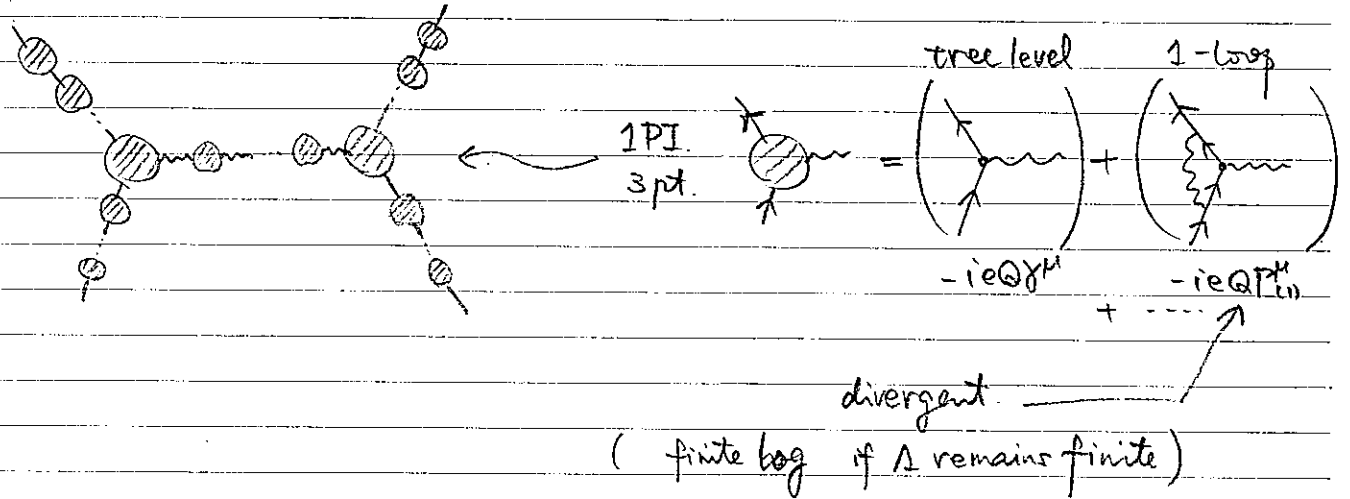 tree level 1-loop
1PI.
3pt.
= ( ) + ( )
-ieQγ^μ -ieQΓ^μ_(1)
+ ·····
divergent
( finite log if Λ remains finite )